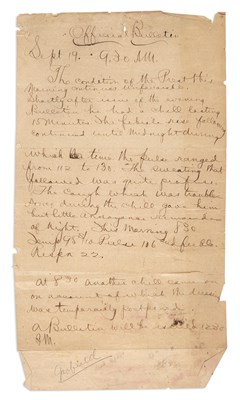 Official Bulletin
Sept 19. 9.30 AM.
The condition of the Prest this
Morning continues unfavorable.
Shortly after issue of the evening
Bulletin he had a chill lasting
15 Minutes. The febrile rise following
continued until Midnight during
which time the pulse ranged
from 112 to 130. The sweating that
followed was quite profuse.
The Cough which was trouble
some during the chill gave him
but little annoyance remainder
of Night. This Morning 8 30
Temp 98 Pulse 106 feeble
Respn 22.
At 8 30 another chill came on
on account of which the dressing
was temporarily postponed.
A Bulletin will be issued 12.30
P.M.